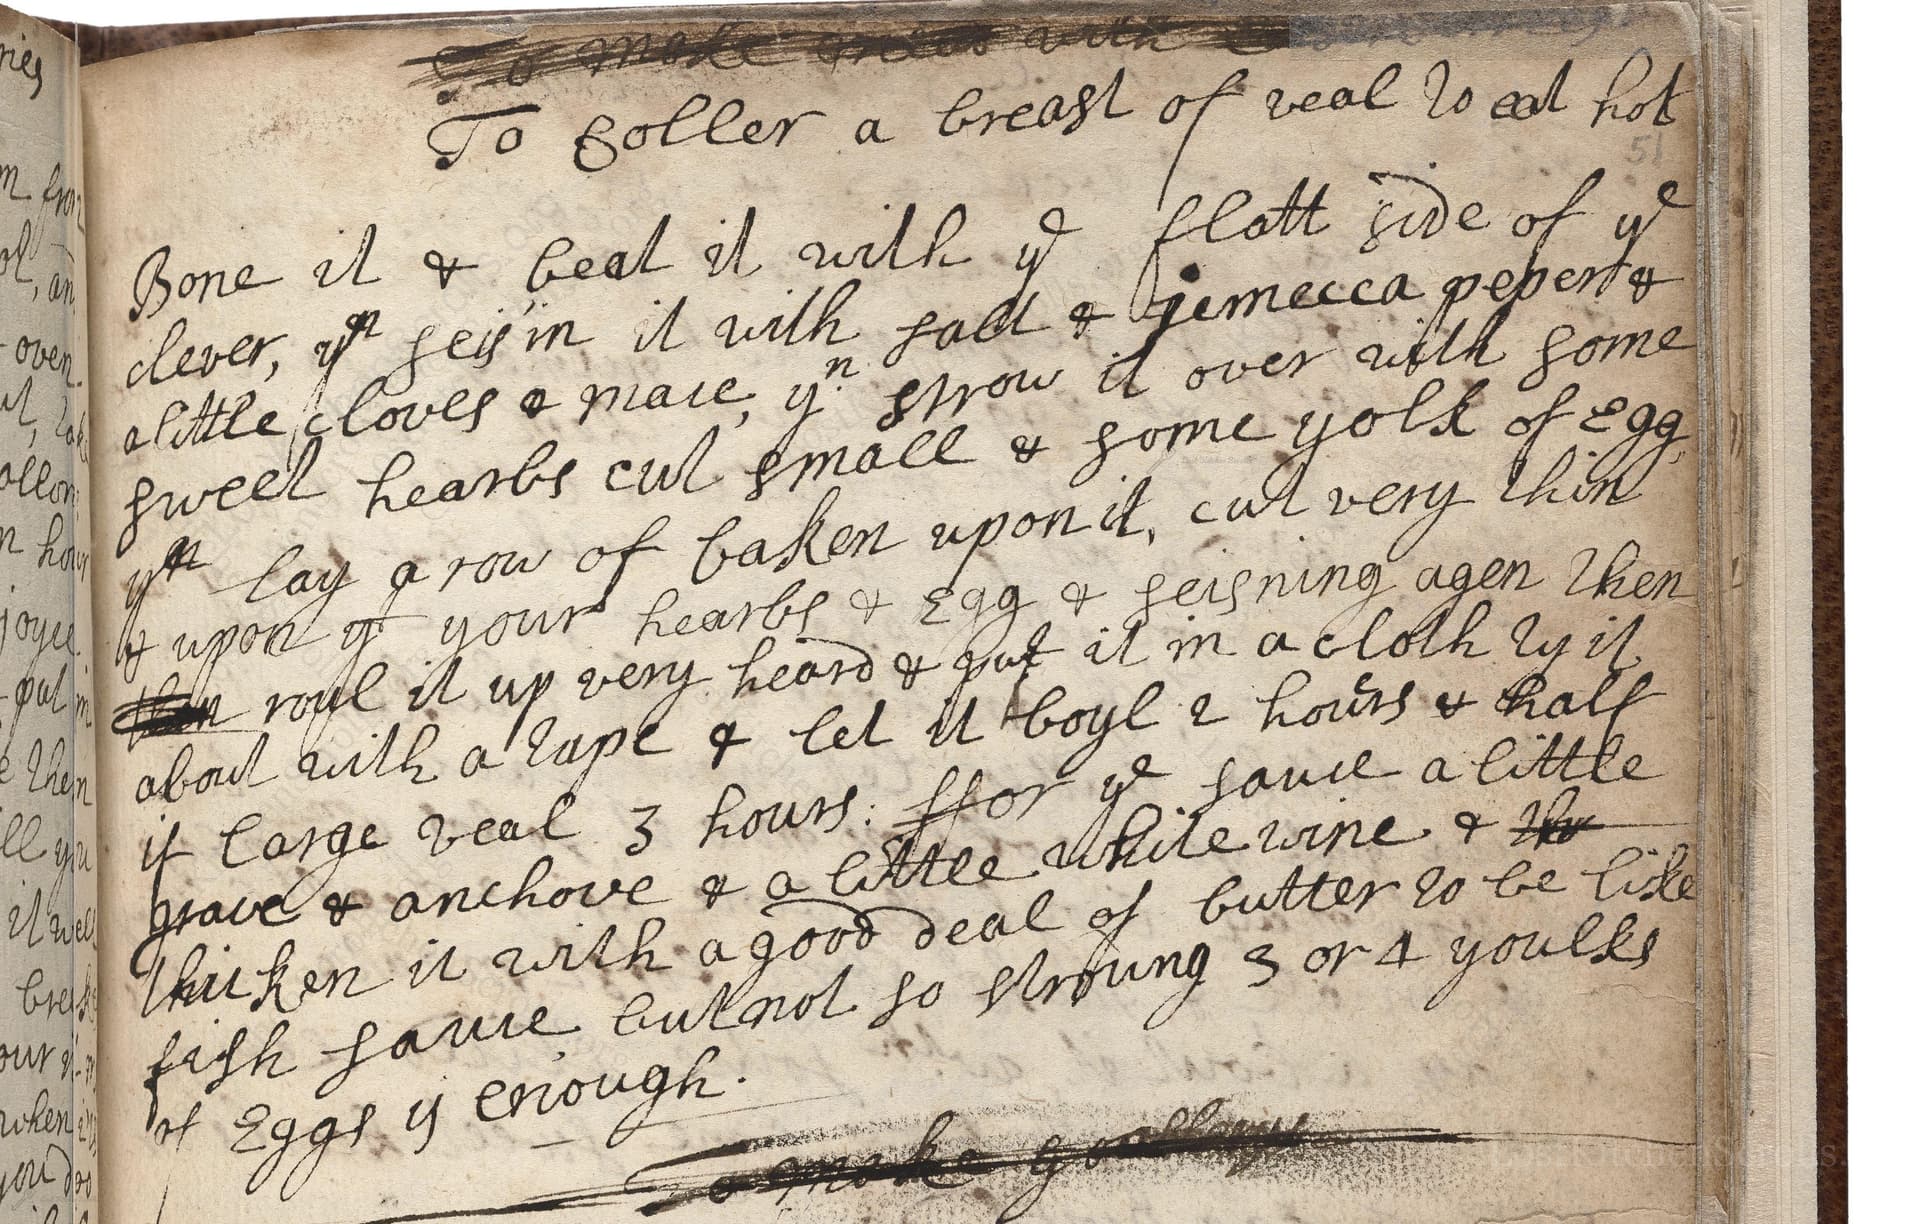 To make with
To Coller a breast of veal to eat hot
51
Bone it & beat it with yᵉ flatt side of yᵉ
clever, yⁿ seisin it with salt & jemecca peper &
a little cloves & mace, yⁿ strow it over with some
sweet hearbs cut small & some yolk of Egg,
yⁿ lay a row of baken upon it, cut very thin
& upon yᵗ your hearbs & Egg & seisning agen then
then roul it up very heard & put it in a cloth ty it
about with a tape & let it boyl 2 hours & half
if large veal 3 hours: ffor yᵉ sauce a little
grave & anchove & a little white wine &
thicken it with a good deal of butter to be like
fish sauce but not so stroung 3 or 4 youlks
of Eggs is enough.
To make